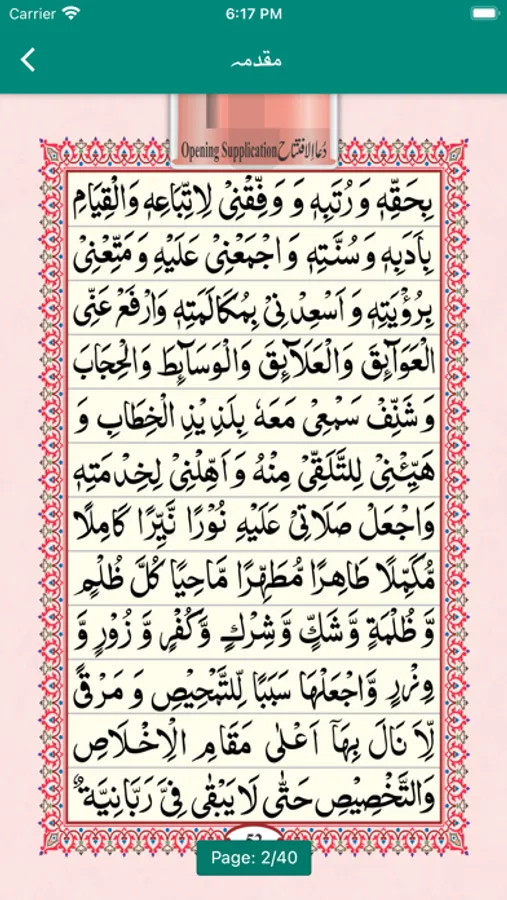 Carrier
6:17 PM
مقدمہ
Opening Supplication دُعاء الافتتاح
بِحَقِّهٖ وَ رُتَبِهٖ وَ وَفِّقْنِیْ لِاتِّبَاعِهٖ وَالْقِیَامِ
بِاٰدَبِهٖ وَ سُنَّتِهٖ وَ اجْمَعْنِیْ عَلَیْهِ وَ مَتِّعْنِیْ
بِرُؤْیَتِهٖ وَ اَسْعِدْنِیْ بِمُکَالَمَتِهٖ وَارْفَعْ عَنِّی
الْعَوَآئِقَ وَالْعَلَآئِقَ وَالْوَسَآئِطَ وَالْحِجَابَ
وَ شَنِّفْ سَمْعِیْ مَعَهٗ بِلَذِیْذِ الْخِطَابِ وَ
هَیِّئْنِیْ لِلتَّلَقِّیْ مِنْهُ وَ اَهِّلْنِیْ لِخِدْمَتِهٖ
وَاجْعَلْ صَلَاتِیْ عَلَیْهِ نُوْرًا نَّیِّرًا کَامِلًا
مُّکَمِّلًا طَاهِرًا مُّطَهِّرًا مَّاحِیًا کُلَّ ظُلْمٍ
وَّ ظُلْمَةٍ وَّ شَكٍّ وَّ شِرْكٍ وَّ کُفْرٍ وَّ زُوْرٍ وَّ
وِزْرٍ وَّاجْعَلْهَا سَبَبًا لِّلتَّمْحِیْصِ وَ مَرْقًی
لِّاَ نَالَ بِهَآ اَعْلٰی مَقَامِ الْاِخْلَاصِ
وَالتَّخْصِیْصِ حَتّٰی لَا یَبْقٰی فِیَّ رَبَّانِیَّةٌ
Page: 2/40